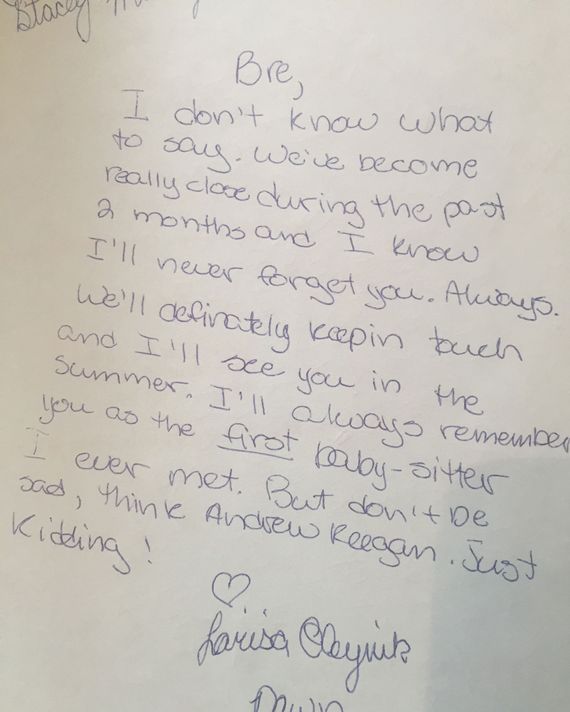 Stacey
Bre,
I don't know what
to say. We've become
really close during the past
2 months and I know
I'll never forget you. Always.
We'll definately keep in touch
and I'll see you in the
summer. I'll always remember
you as the first baby-sitter
I ever met. But don't be
sad, think Andrew Keegan. Just
Kidding!
♡
Larisa Oleynik
Dawn